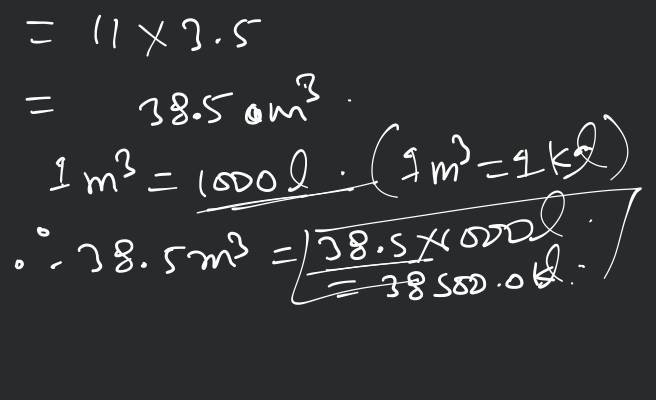 = 11 × 3.5
= 38.5 m³.
1 m³ = 1000 l . (1 m³ = 1 kl)
∴ 38.5 m³ = 38.5 × 1000 l.
= 38500.0 kl.